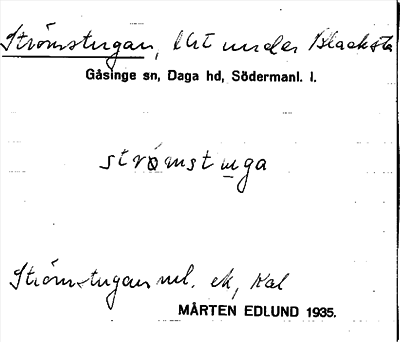 Strömstugan, lht under Blacksta
Gåsinge sn, Daga hd, Södermanl. l.
strömstuga
Strömstugan ek, Kal
MÅRTEN EDLUND 1935.